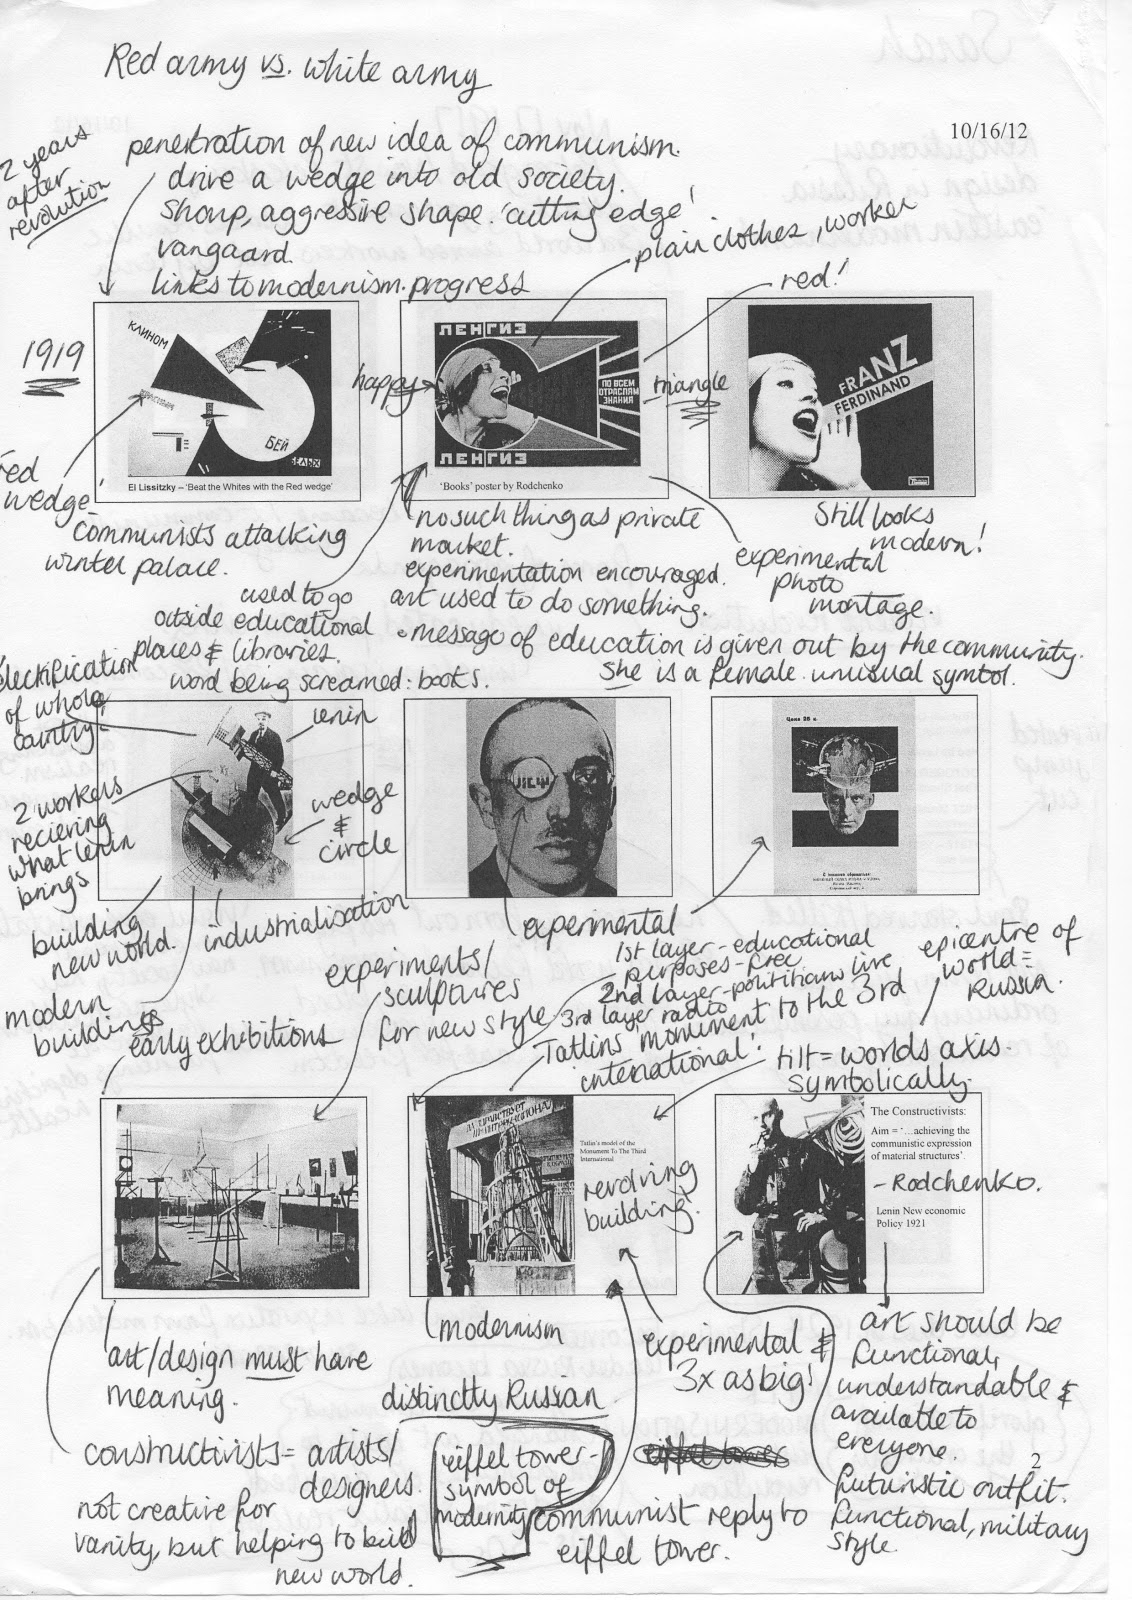 Red army vs. white army
10/16/12
2 years
after
revolution
penetration of new idea of communism.
drive a wedge into old society.
sharp, aggressive shape. 'cutting edge'
vangaard.
links to modernism. progress
plain clothes, worker
red!
1919
КЛИНОМ
БЕЙ
БЕЛЫХ
El Lissitzky – 'Beat the Whites with the Red wedge'
happy
ЛЕНГИЗ
ПО ВСЕМ
ОТРАСЛЯМ
ЗНАНИЯ
ЛЕНГИЗ
'Books' poster by Rodchenko
triangle
FRANZ
FERDINAND
red
wedge!
communists attatking
winter palace.
no such thing as private
market.
experimentation encouraged.
art used to do something.
Still looks
modern!
experimental
photo
montage.
used to go
outside educational
places & libraries.
word being screamed: books.
• message of education is given out by the community.
she is a female. unusual symbol.
electrification
of whole
country!
lenin
2 workers
recieving
what lenin
brings
wedge
&
circle
Цена 25 к.
building
new world.
industrialisation
modern
buildings
experimental
early exhibitions
experiments/
sculptures
for new style
1st layer - educational
purposes - free
2nd layer - polititians live
3rd layer radio
Tatlins' monument to the 3rd
international'.
epicentre of
world =
Russia.
tilt = worlds axis.
symbolically.
Tatlin's model of the
Monument To The Third
International
revolving
building.
The Constructivists:
Aim = '…achieving the
communistic expression
of material structures'.
- Rodchenko.
Lenin New economic
Policy 1921
art/design must have
meaning.
modernism
distinctly Russian.
experimental &
3x as big!
art should be
functional,
understandable &
available to
everyone.
2
futuristic outfit.
functional, military
style.
constructivists = artists/
designers.
not creative for
vanity, but helping to build
new world.
eiffel tower -
symbol of
modernity
eiffel tower
communist reply to
eiffel tower.